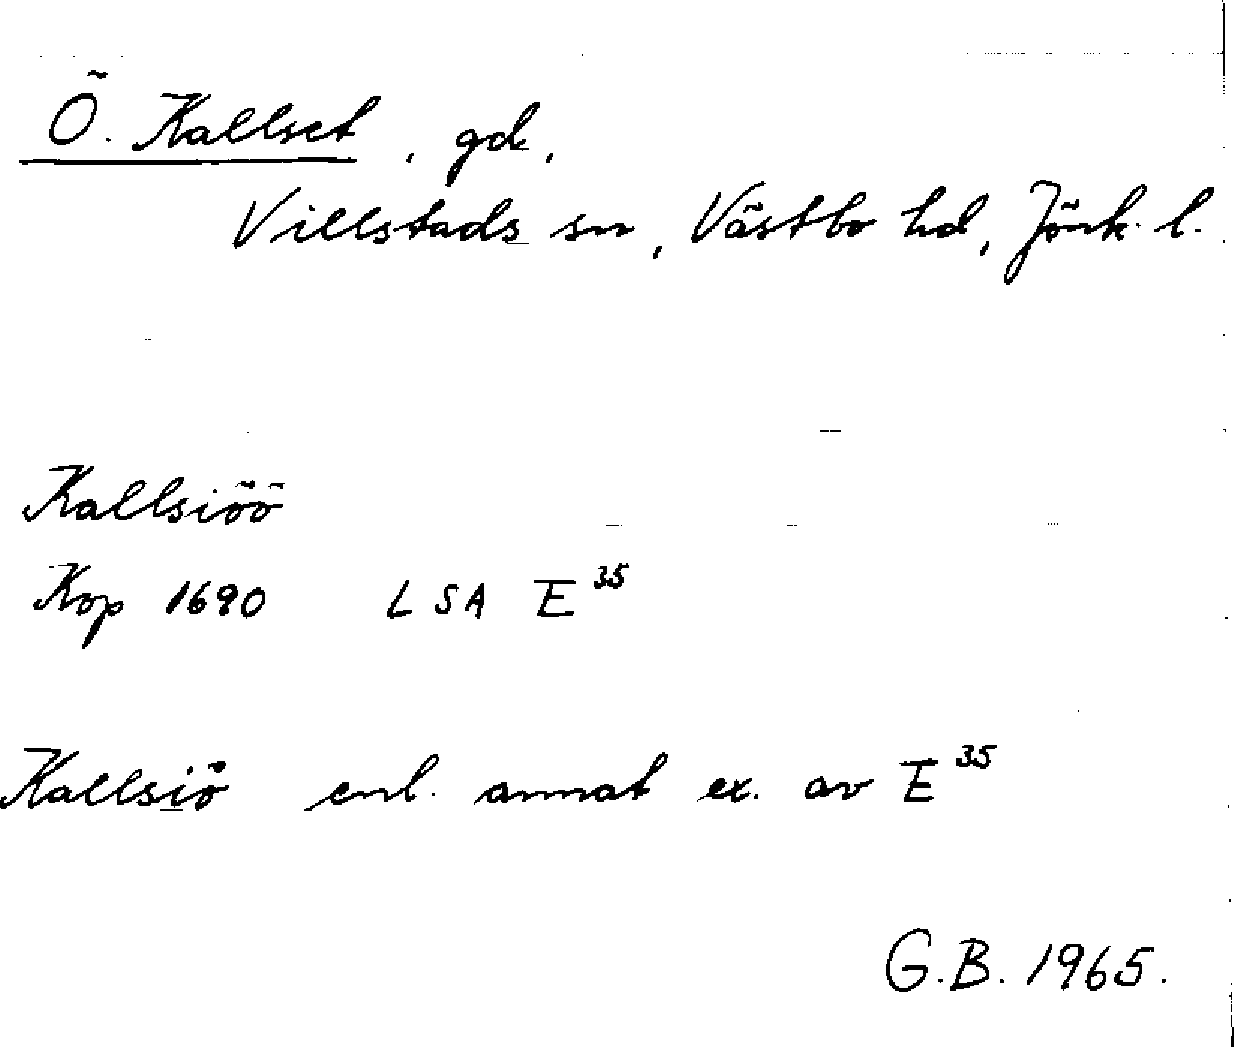 Ö. Kallset, gd,
Villstads sn, Västbo hd, Jönk. l.
Kallsiöö
Kop 1690 LSA E 35
Kallsiö enl. annat ex. av E 35
G.B. 1965.